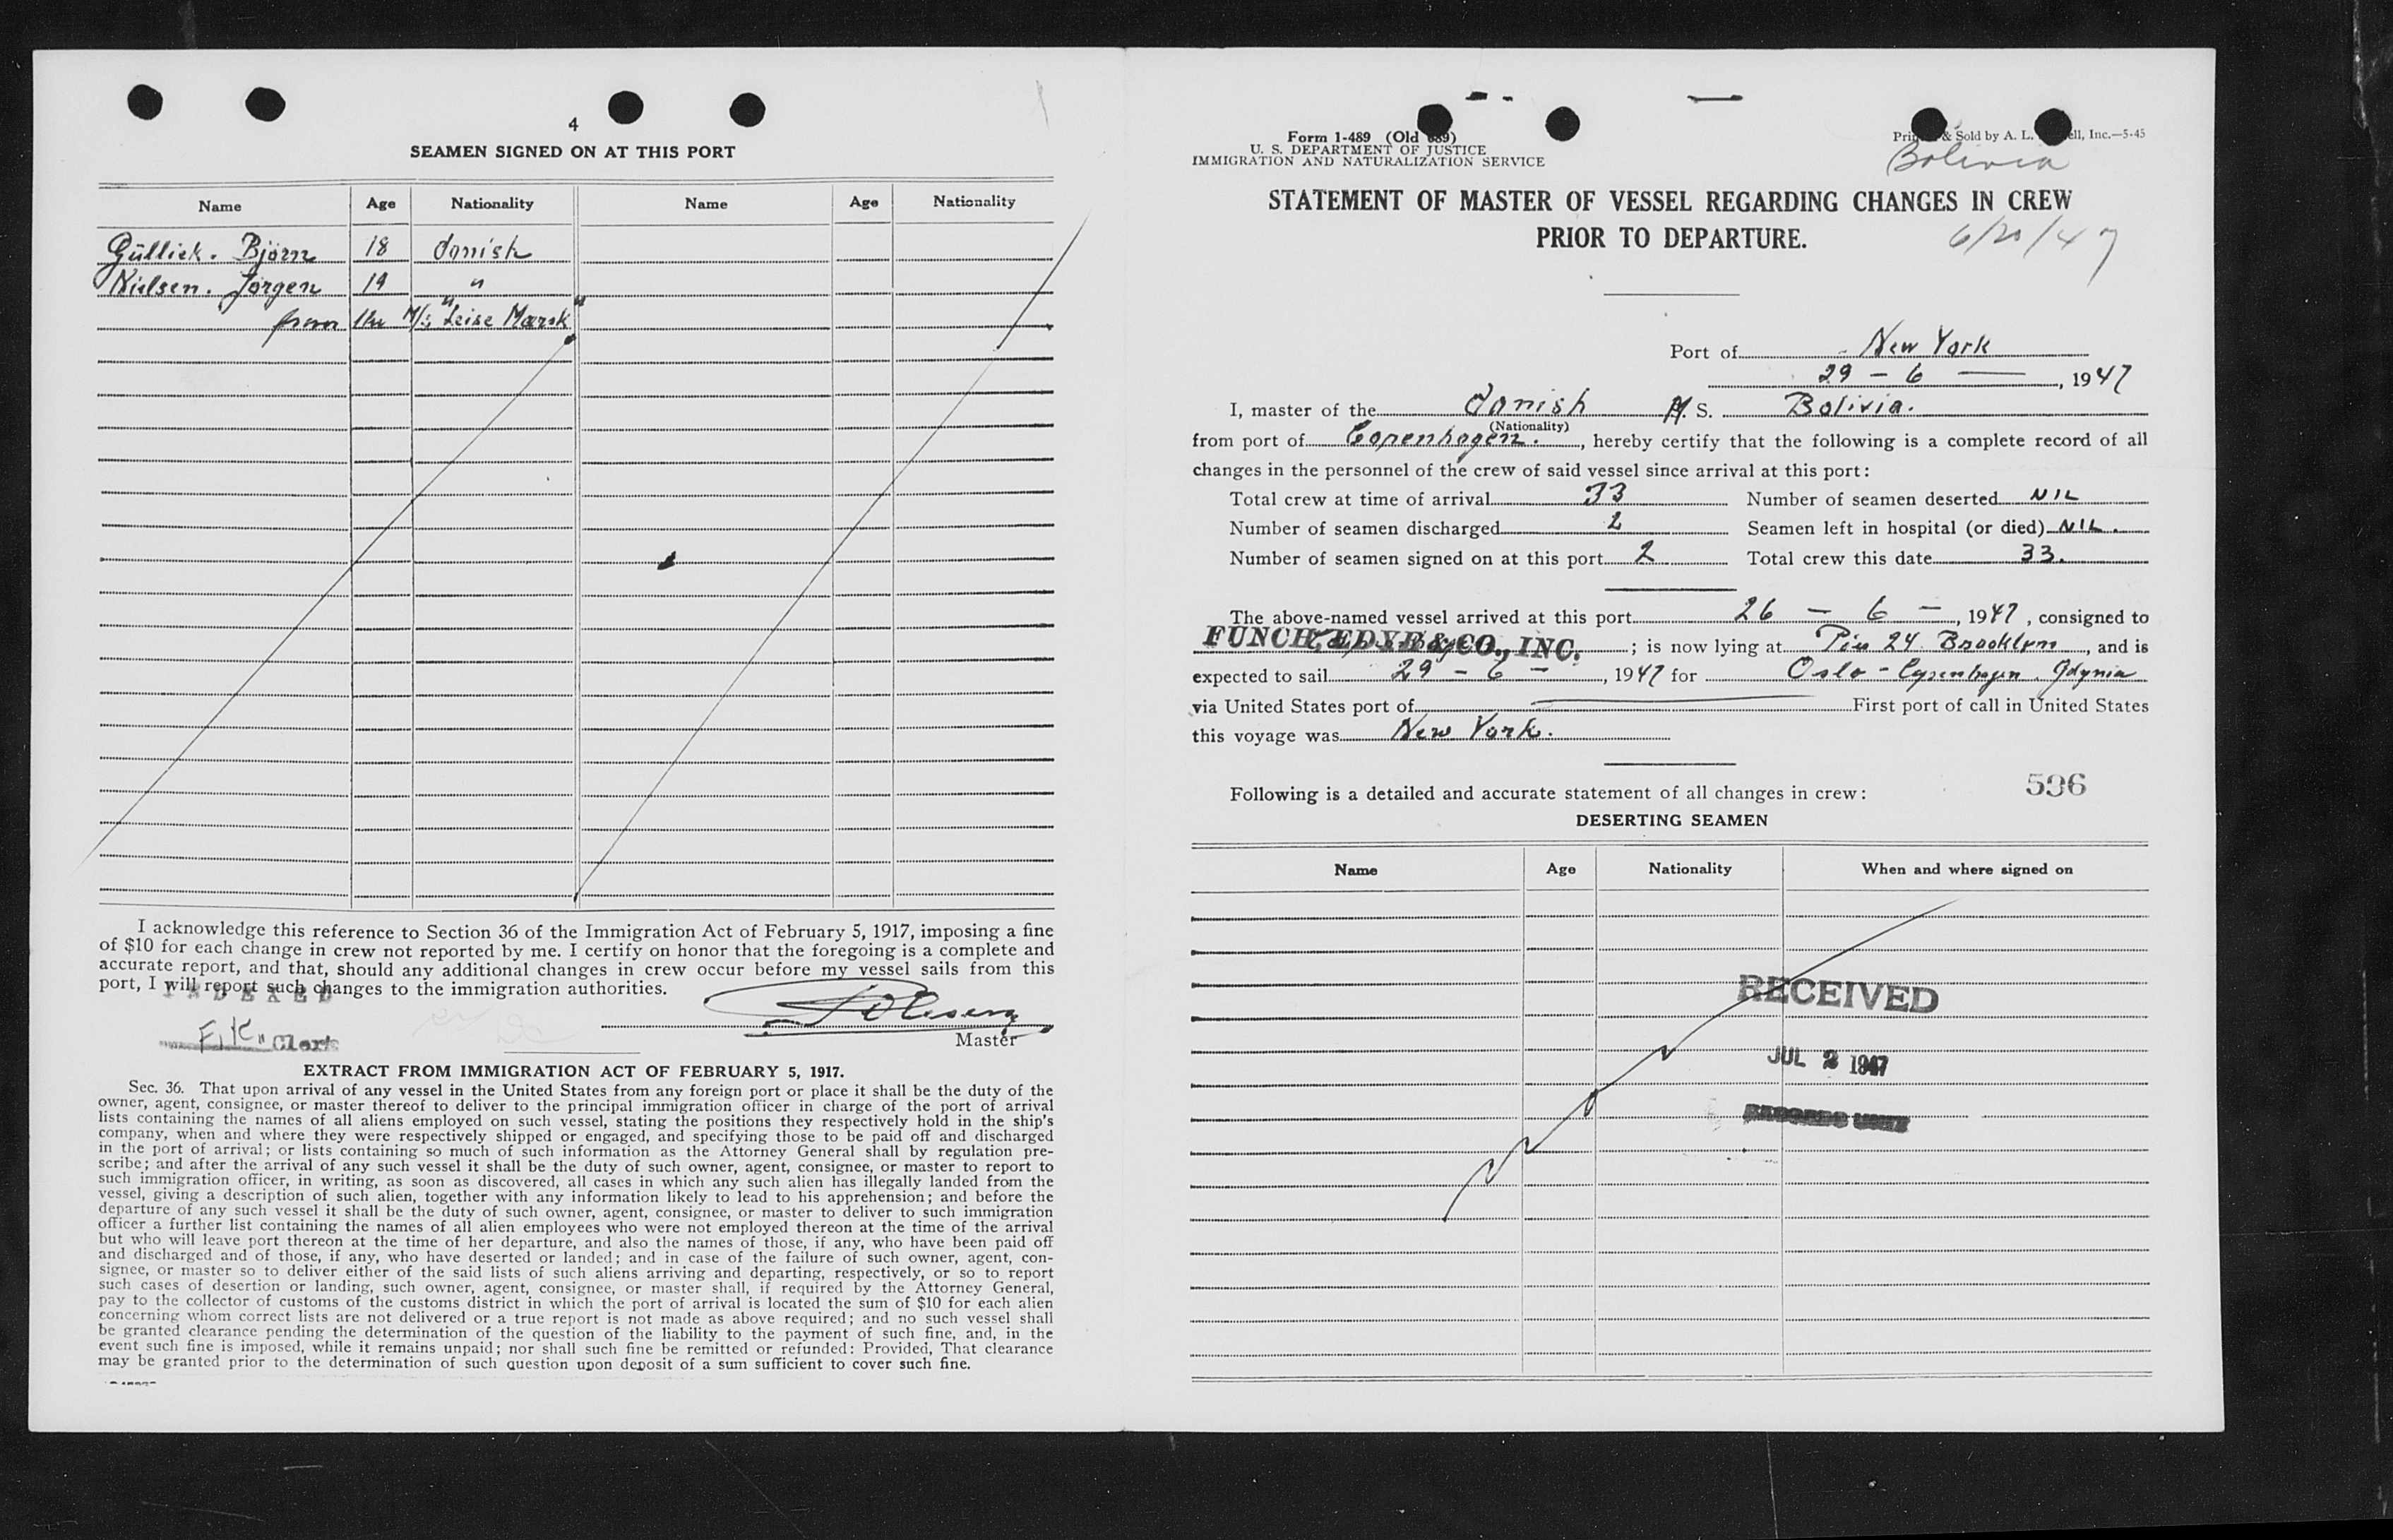 4
SEAMEN SIGNED ON AT THIS PORT
Name Age Nationality Name Age Nationality
Güllick. Bjørn 18 danish
Nielsen. Jørgen 19 "
from the M/S "Leise Mærsk"
I acknowledge this reference to Section 36 of the Immigration Act of February 5, 1917, imposing a fine
of $10 for each change in crew not reported by me. I certify on honor that the foregoing is a complete and
accurate report, and that, should any additional changes in crew occur before my vessel sails from this
port, I will report such changes to the immigration authorities.
INDEXED
F.K. Clerk
Master
EXTRACT FROM IMMIGRATION ACT OF FEBRUARY 5, 1917.
Sec. 36. That upon arrival of any vessel in the United States from any foreign port or place it shall be the duty of the
owner, agent, consignee, or master thereof to deliver to the principal immigration officer in charge of the port of arrival
lists containing the names of all aliens employed on such vessel, stating the positions they respectively hold in the ship's
company, when and where they were respectively shipped or engaged, and specifying those to be paid off and discharged
in the port of arrival; or lists containing so much of such information as the Attorney General shall by regulation pre-
scribe; and after the arrival of any such vessel it shall be the duty of such owner, agent, consignee, or master to report to
such immigration officer, in writing, as soon as discovered, all cases in which any such alien has illegally landed from the
vessel, giving a description of such alien, together with any information likely to lead to his apprehension; and before the
departure of any such vessel it shall be the duty of such owner, agent, consignee, or master to deliver to such immigration
officer a further list containing the names of all alien employees who were not employed thereon at the time of the arrival
but who will leave port thereon at the time of her departure, and also the names of those, if any, who have been paid off
and discharged and of those, if any, who have deserted or landed; and in case of the failure of such owner, agent, con-
signee, or master so to deliver either of the said lists of such aliens arriving and departing, respectively, or so to report
such cases of desertion or landing, such owner, agent, consignee, or master shall, if required by the Attorney General,
pay to the collector of customs of the customs district in which the port of arrival is located the sum of $10 for each alien
concerning whom correct lists are not delivered or a true report is not made as above required; and no such vessel shall
be granted clearance pending the determination of the question of the liability to the payment of such fine, and, in the
event such fine is imposed, while it remains unpaid; nor shall such fine be remitted or refunded: Provided, That clearance
may be granted prior to the determination of such question upon deposit of a sum sufficient to cover such fine.
Form 1-489 (Old 689)
U. S. DEPARTMENT OF JUSTICE
IMMIGRATION AND NATURALIZATION SERVICE
& Sold by A. L. Inc.—5-45
Bolivia
STATEMENT OF MASTER OF VESSEL REGARDING CHANGES IN CREW
PRIOR TO DEPARTURE.
6/20/47
Port of New York
29 - 6 —, 1947
I, master of the danish M. S. Bolivia.
(Nationality)
from port of Copenhagen., hereby certify that the following is a complete record of all
changes in the personnel of the crew of said vessel since arrival at this port:
Total crew at time of arrival 33 Number of seamen deserted NIL
Number of seamen discharged 2 Seamen left in hospital (or died) NIL.
Number of seamen signed on at this port 2 Total crew this date 33.
The above-named vessel arrived at this port 26 — 6 —, 1947, consigned to
FUNCH, EDYE & CO., INC.; is now lying at Pier 24 Brooklyn, and is
expected to sail 29 - 6 —, 1947 for Oslo - Copenhagen. Gdynia
via United States port of — First port of call in United States
this voyage was New York.
Following is a detailed and accurate statement of all changes in crew: 596
DESERTING SEAMEN
Name Age Nationality When and where signed on
RECEIVED
JUL 2 1947
RECORDS UNIT